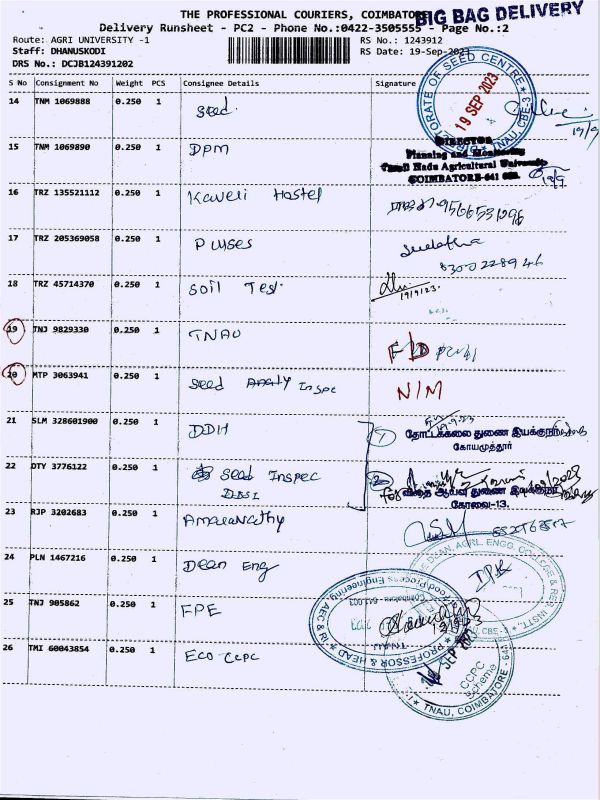 THE PROFESSIONAL COURIERS, COIMBATORE
BIG BAG DELIVERY
Delivery Runsheet - PC2 - Phone No.:0422-3505555 - Page No.:2
Route: AGRI UNIVERSITY -1
RS No.: 1243912
Staff: DHANUSKODI
RS Date: 19-Sep-2023
DRS No.: DCJB124391202
S No Consignment No Weight PCS Consignee Details Signature
14 TNM 1069888 0.250 1 Seed
DIRECTORATE OF SEED CENTRE
19 SEP 2023
TNAU, CBE-3
19/9
15 TNM 1069890 0.250 1 DPM
DIRECTOR
Planning and Monitoring
Tamil Nadu Agricultural University
COIMBATORE-641 003.
19/9
16 TRZ 135521112 0.250 1 Kaveri Hostel
17 TRZ 205369058 0.250 1 Pluses
18 TRZ 45714370 0.250 1 Soil Test
19/9/23
19 TNJ 9829330 0.250 1 TNAU
F/D
20 MTP 3063941 0.250 1 Seed Inspec
N/M
21 SLM 328601900 0.250 1 DDH
1
தோட்டக்கலை துணை இயக்குநர்
கோயமுத்தூர்
22 DTY 3776122 0.250 1 Seed Inspec
DDSI
2
for விதை ஆய்வு துணை இயக்குநர்
கோவை-13.
23 RJP 3202683 0.250 1 Amaravathy
24 PLN 1467216 0.250 1 Dean Eng
DEAN, AGRL. ENGG. COLLEGE & RES. INSTT.
CBE-
25 TNJ 905862 0.250 1 FPE
PROFESSOR & HEAD
Food Process Engineering AEC & RI
Coimbatore 641 003
TNAU
19/9/23
26 TMI 60043854 0.250 1 Eco-CCPC
SEP
CCPC
Scheme
TNAU, COIMBATORE - 641